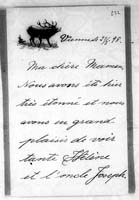 232
Vienne le 3/6 98.
Ma chère Maman
Nous avons été hier
très étonné et nous
avons eu grand
plaisir de voir
tante Hélène
et l'oncle Joseph.